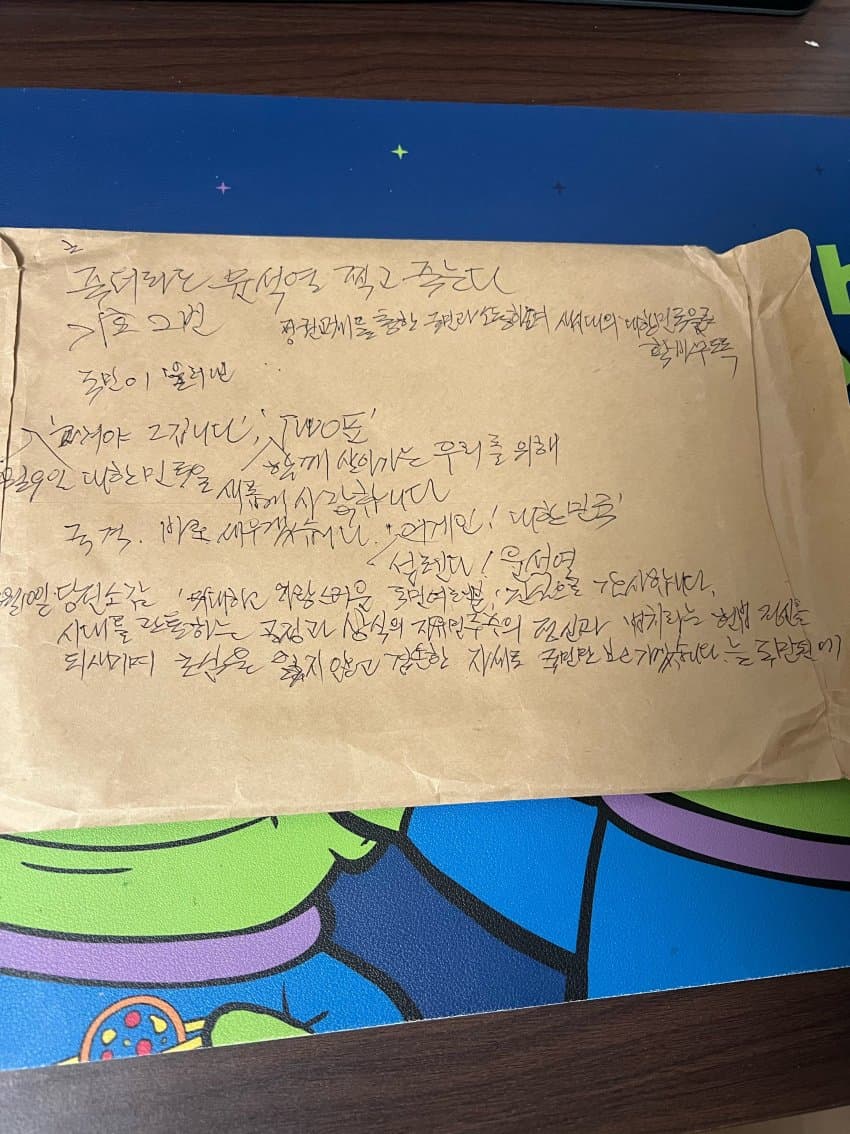 죽더라도 윤석열 찍고 죽는다
기호 2번
정권교체를 통한 국민과 소통하며 새시대의 대한민국을
국민이 불러낸
바꿔야 그깁니다', 'TWO표'
9일 대한민국을 함께 살아가는 우리를 위해
새롭게 시작합니다
국격. 바로 세우겠습니다. 어게인! 대한민국'
설렌다! 윤석열
10일 당선소감 '위대하고 자랑스러운 국민여러분, 진심으로 감사합니다.
시대를 관통하는 공정과 상식의 자유민주주의 정신과 법치라는 헌법 정신을
되새기며 초심을 잃지 않고 겸손한 자세로 국민만 보고 가겠습니다